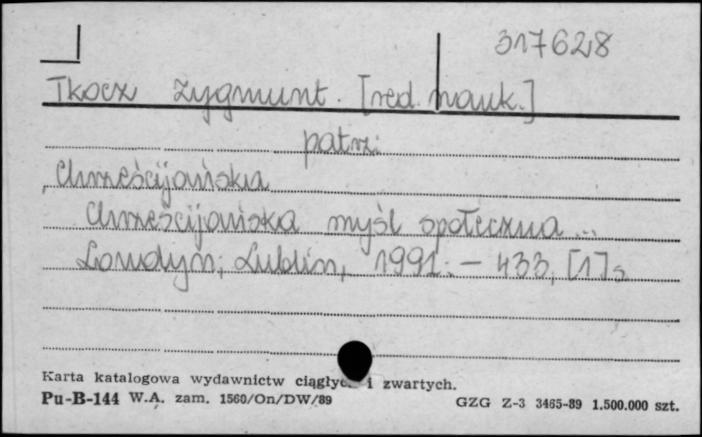 317628
Tkocz Zygmunt. [red. nauk.]
patrz:
Chrześcijańska
Chrześcijańska myśl społeczna ...
Londyn; Lublin, 1991. – 433, [1] s
Karta katalogowa wydawnictw ciągłych i zwartych.
Pu-B-144 W.A. zam. 1560/On/DW/89 GZG Z-3 3465-89 1.500.000 szt.